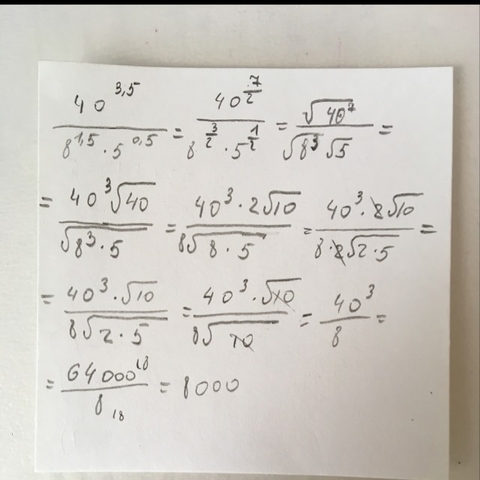 40^{3,5} / (8^{1,5} · 5^{0,5}) = 40^{7/2} / (8^{3/2} · 5^{1/2}) = √(40^7) / (√(8^3) √5) =
= 40^3 √40 / √(8^3 · 5) = 40^3 · 2√10 / (8√(8 · 5)) = 40^3 · 2√10 / (8 · 2√(2 · 5)) =
= 40^3 · √10 / (8√(2 · 5)) = 40^3 · √10 / (8√10) = 40^3 / 8 =
= 64000 |8 / 8 |8 = 8000